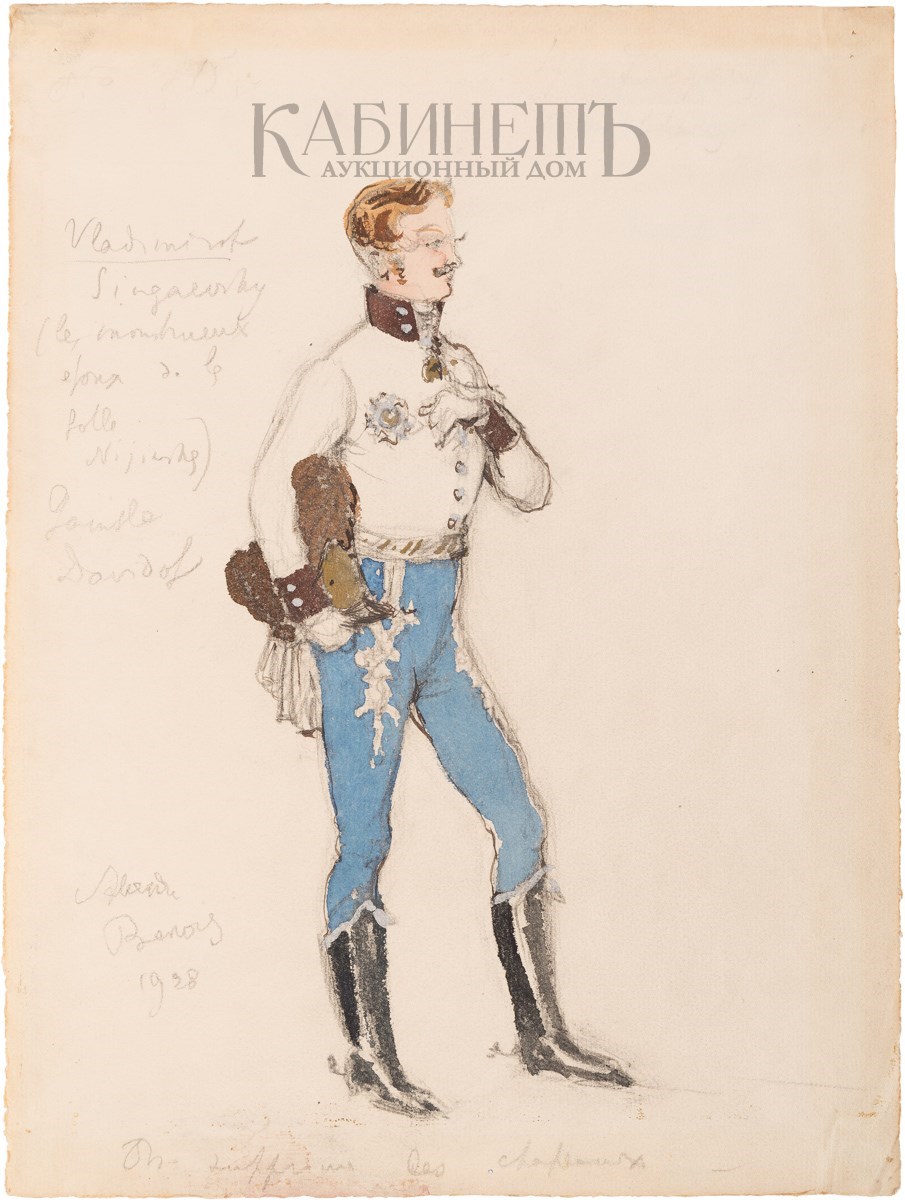 КАБИНЕТЪ
АУКЦИОННЫЙ ДОМ
Vladimirof
Singaevsky
(le monstrueux
époux de la
folle
Nijinska)
Davidof
Alexandre
Benois
1928
On supprime les chapeaux